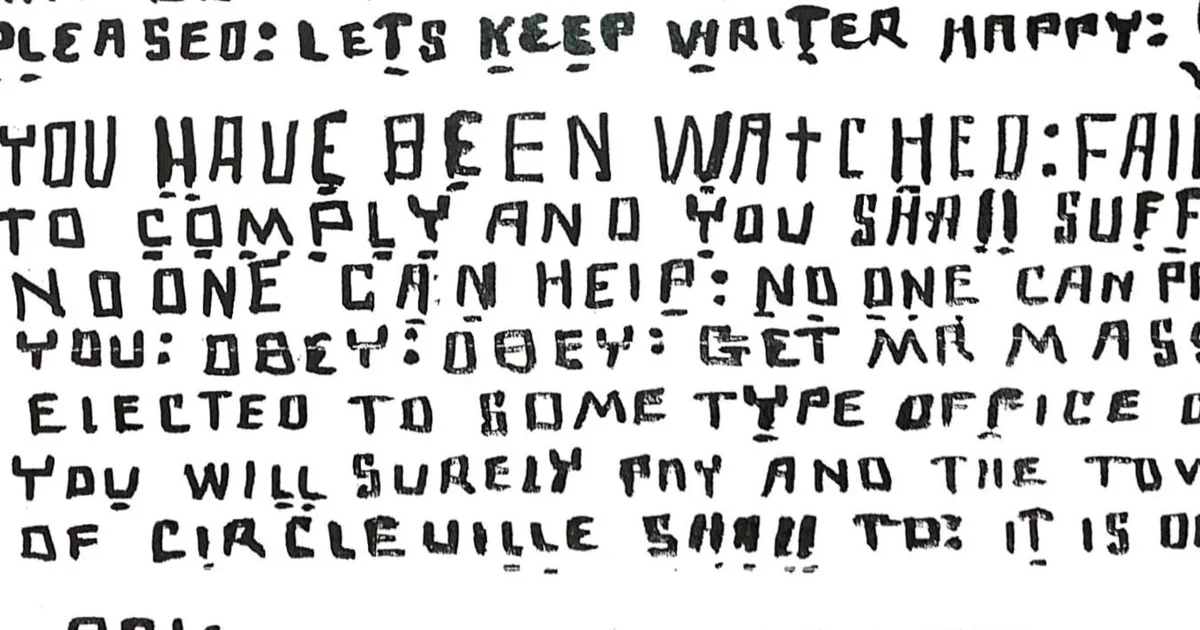 PLEASED: LETS KEEP WRITER HAPPY:
YOU HAVE BEEN WATCHED: FAI
TO COMPLY AND YOU SHALL SUFF
NO ONE CAN HELP: NO ONE CAN
YOU: OBEY: OBEY: GET MR MASS
ELECTED TO SOME TYPE OFFICE O
YOU WILL SURELY PAY AND THE TOW
OF CIRCLEVILLE SHALL TO: IT IS